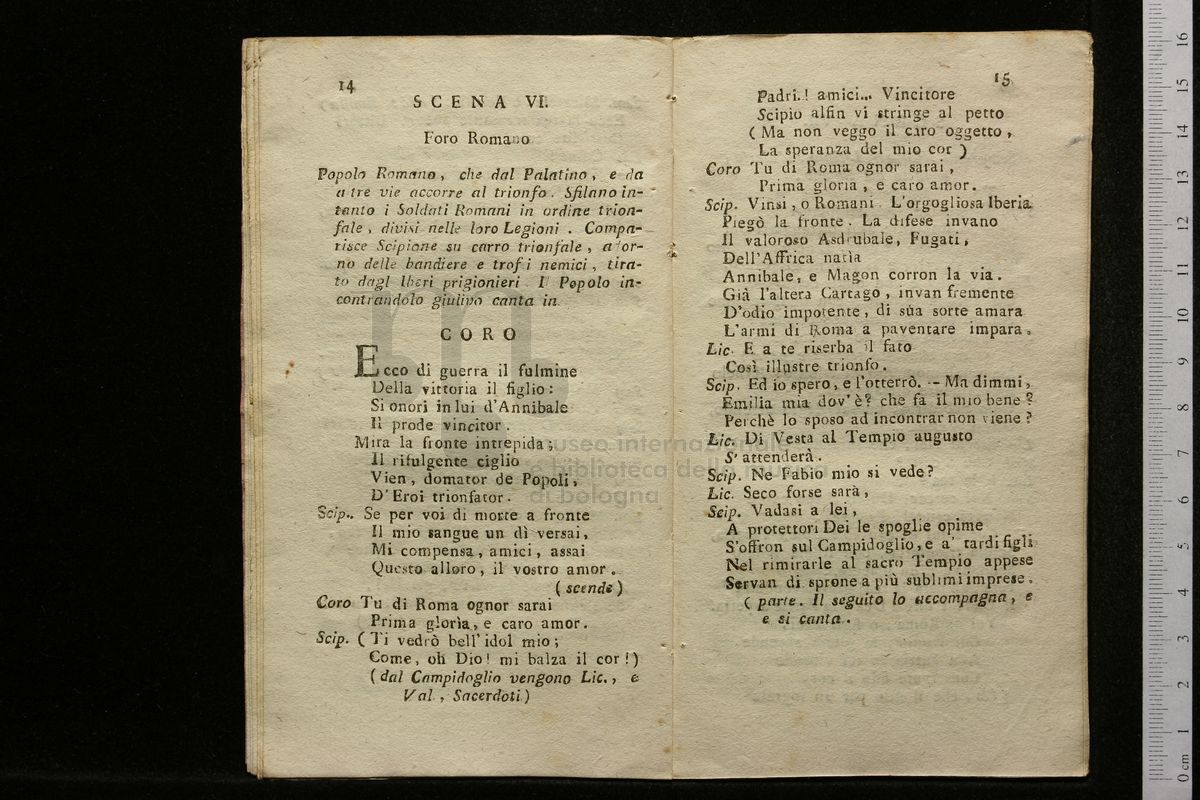 14
SCENA VI.
Foro Romano
Popolo Romano, che dal Palatino, e da
a tre vie accorre al trionfo. Sfilano in-
tanto i Soldati Romani in ordine trion-
fale, divisi nelle loro Legioni. Compa-
risce Scipione su carro trionfale, ador-
no delle bandiere e trofei nemici, tira-
to dagl' Iberi prigionieri. Il Popolo in-
contrandolo giulivo canta in
CORO
Ecco di guerra il fulmine
Della vittoria il figlio:
Si onori in lui d'Annibale
Il prode vincitor.
Mira la fronte intrepida;
Il rifulgente ciglio
Vien, domator de Popoli,
D'Eroi trionfator.
Scip. Se per voi di morte a fronte
Il mio sangue un dì versai,
Mi compensa, amici, assai
Questo alloro, il vostro amor.
(scende)
Coro Tu di Roma ognor sarai
Prima gloria, e caro amor.
Scip. (Ti vedrò bell'idol mio;
Come, oh Dio! mi balza il cor!)
(dal Campidoglio vengono Lic., e
Val., Sacerdoti)
15
Padri..! amici... Vincitore
Scipio alfin vi stringe al petto
(Ma non veggo il caro oggetto,
La speranza del mio cor)
Coro Tu di Roma ognor sarai,
Prima gloria, e caro amor.
Scip. Vinsi, o Romani. L'orgogliosa Iberia
Piegò la fronte. La difese invano
Il valoroso Asdrubale, Fugati,
Dell'Affrica natìa
Annibale, e Magon corron la via.
Già l'altera Cartago, invan fremente
D'odio impotente, di sùa sorte amara
L'armi di Roma a paventare impara.
Lic. E a te riserba il fato
Così illustre trionfo.
Scip. Ed io spero, e l'otterrò. -- Ma dimmi,
Emilia mia dov'è? che fa il mio bene?
Perchè lo sposo ad incontrar non viene?
Lic. Di Vesta al Tempio augusto
S' attenderà.
Scip. Ne Fabio mio si vede?
Lic. Seco forse sarà,
Scip. Vadasi a lei,
A protettori Dei le spoglie opime
S'offron sul Campidoglio, e a' tardi figli
Nel rimirarle al sacro Tempio appese
Servan di sprone a più sublimi imprese.
(parte. Il seguito lo accompagna, e
e si canta.
museo internazionale
e biblioteca della musica
di bologna
0 cm 1 2 3 4 5 6 7 8 9 10 11 12 13 14 15 16